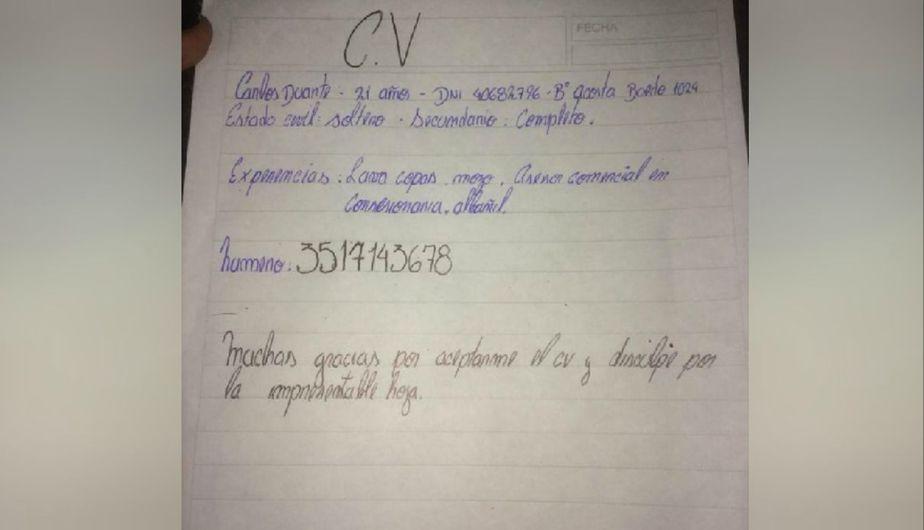 C.V
FECHA
Carlos Duarte - 21 años - DNI 40682796 - B° Acosta Baorte 1024
Estado civil: Soltero . Secundario : Completo.
Experiencias : Lava copas, mozo, Asesor comercial en
Consesionaria, albañil.
humero: 3517143678
Muchas gracias por aceptarme el cv y disculpe por
la impresentable hoja.